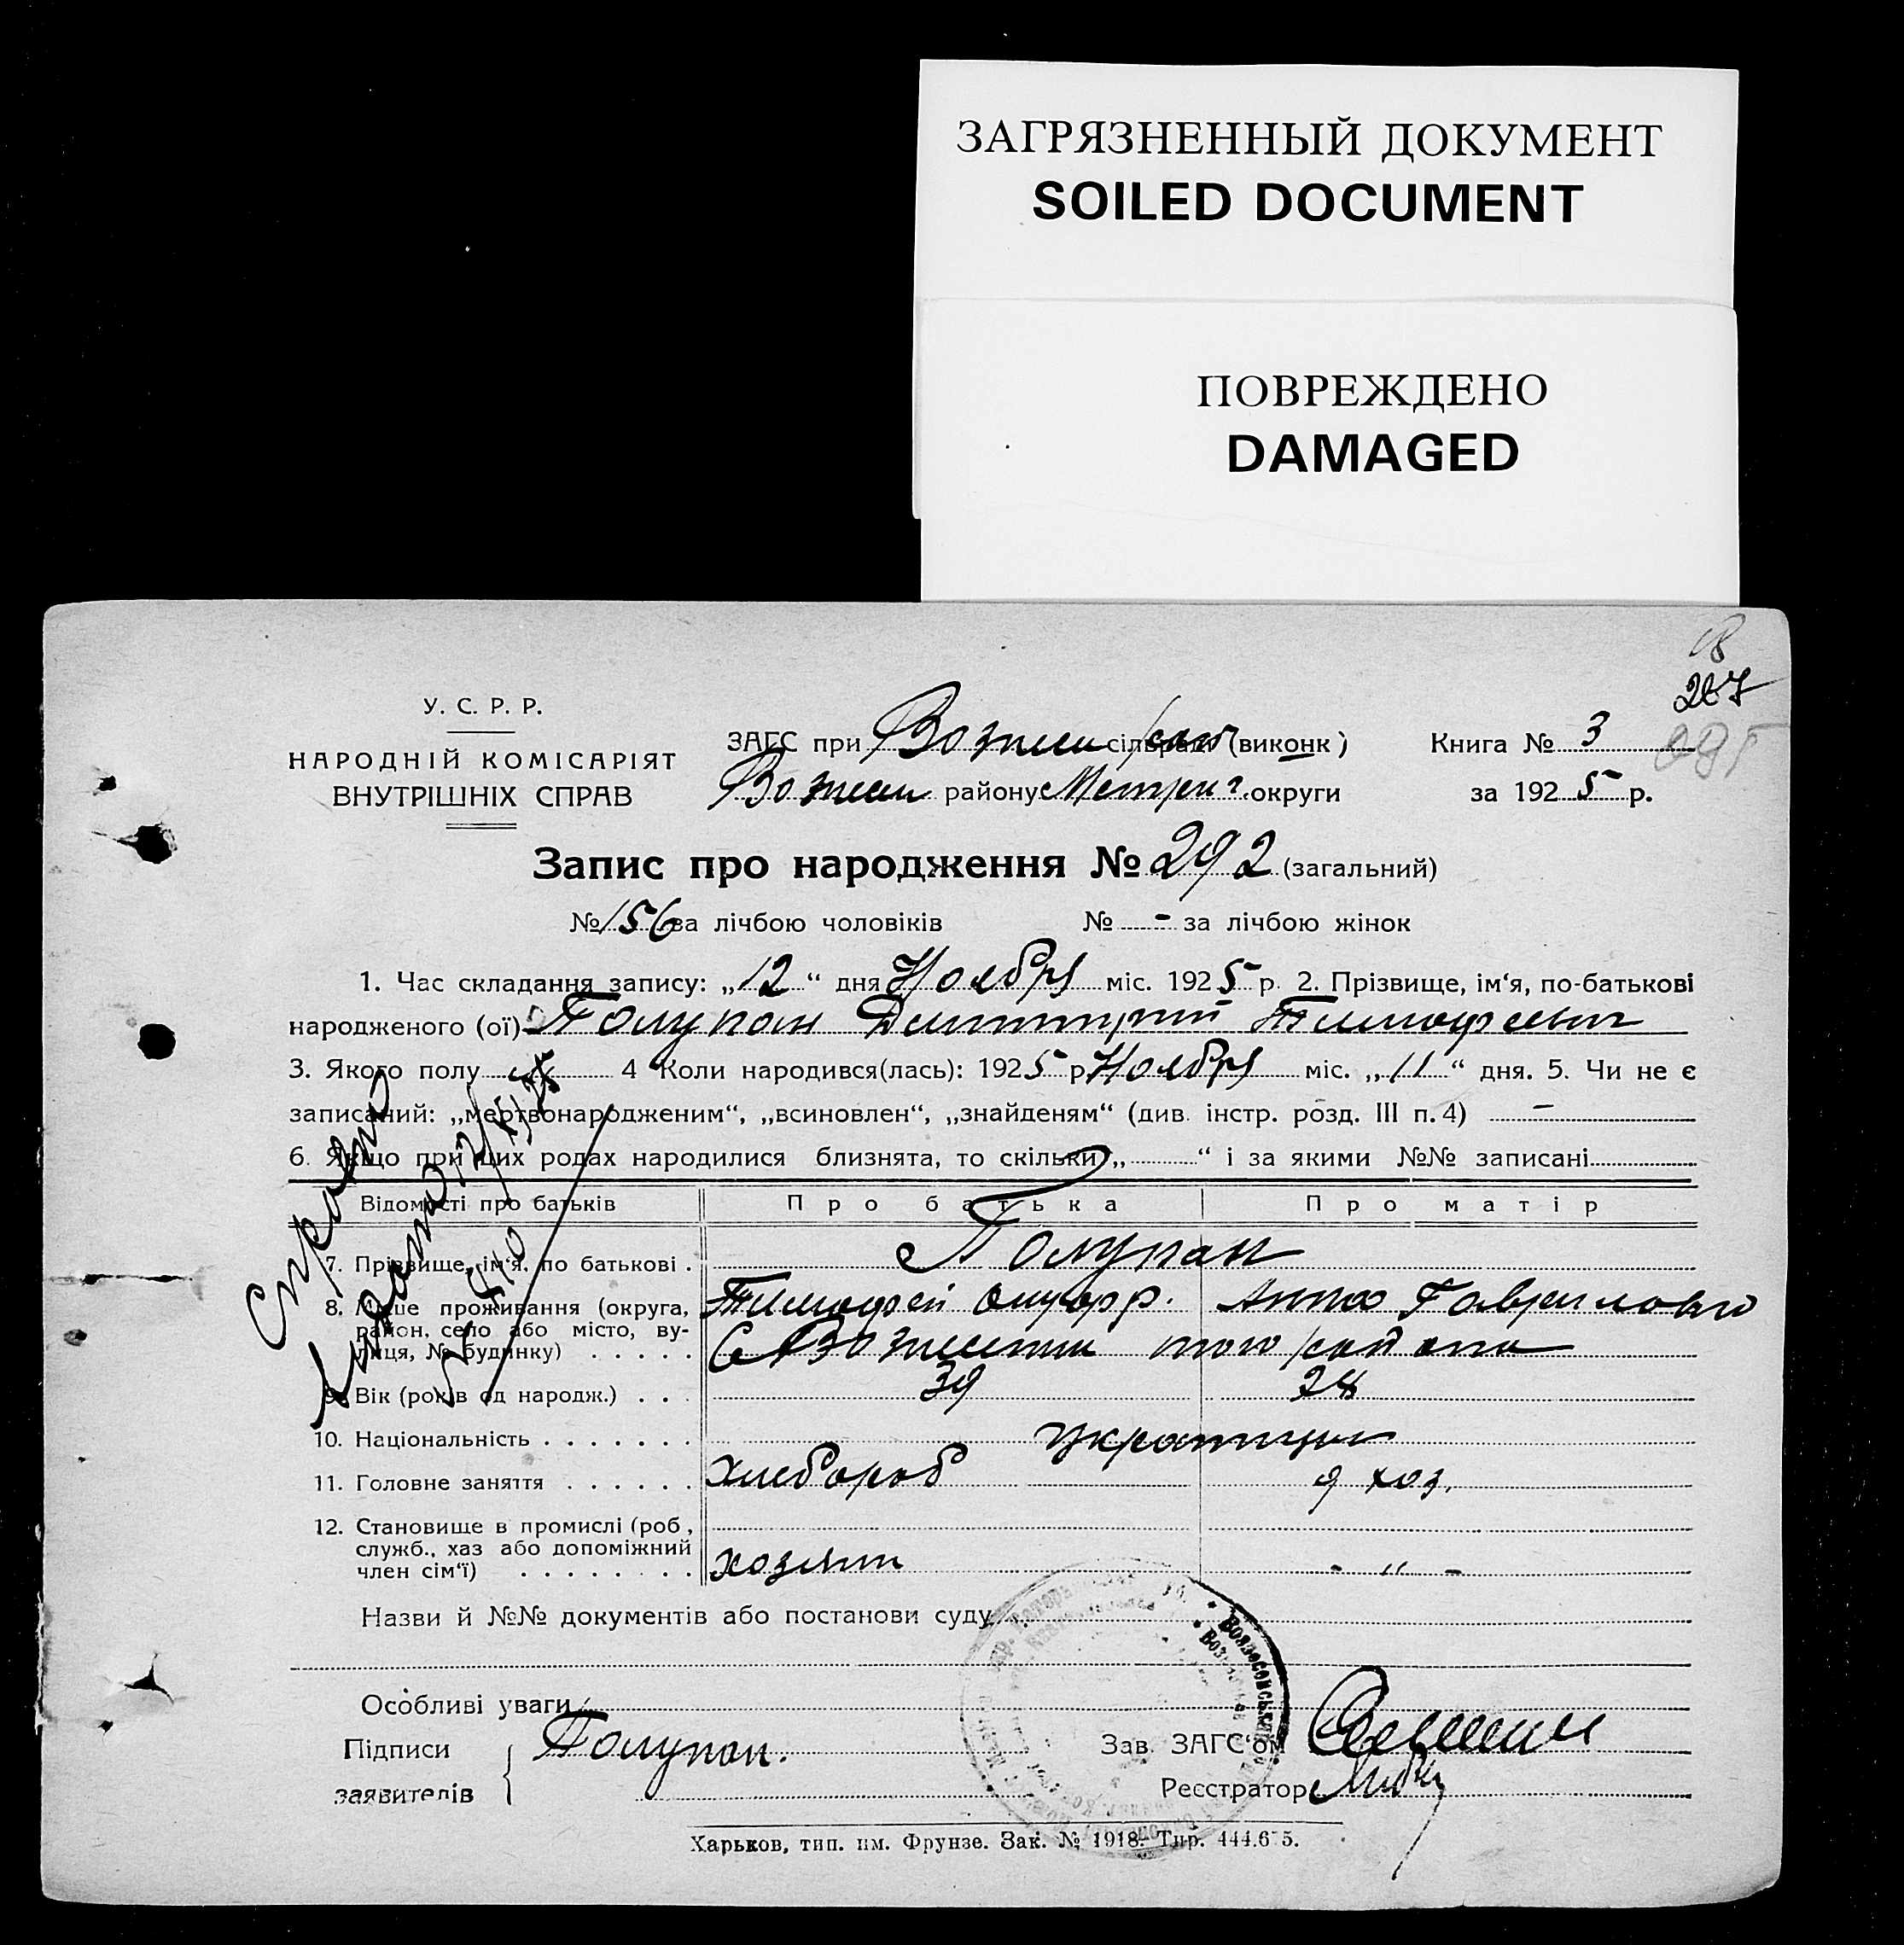 ЗАГРЯЗНЕННЫЙ ДОКУМЕНТ
SOILED DOCUMENT
ПОВРЕЖДЕНО
DAMAGED
267
У. С. Р. Р.
НАРОДНІЙ КОМІСАРІЯТ
ВНУТРІШНІХ СПРАВ
ЗАГС при Вознесен сільрадо (виконк)
Книга № 3
Вознесен району Мелтри округи
за 1925 р.
Запис про народження № 292 (загальний)
№ 156 за лічбою чоловіків № - за лічбою жінок
1. Час складання запису: „12“ дня Ноября міс. 1925 р. 2. Прізвище, ім‘я, по-батькові
народженого (ої) Полупан Дмитрий Тимофеевич
3. Якого полу 4 Коли народився(лась): 1925 р Ноября міс. „11“ дня. 5. Чи не є
записаний: „мертвонародженим“, „всиновлен“, „знайденям“ (див. інстр. розд. III п. 4) -
6. Якщо при цих родах народилися близнята, то скільки „ “ і за якими №№ записані
Відомості про батьків Про батька Про матір
7. Прізвище, ім‘я, по батькові . Полупан
Тимофей Онуфр. Анна Гавриловна
8. Місце проживання (округа,
район, село або місто, ву-
лиця, № будинку) . . . . . С Вознесенки того района
9. Вік (років од народж.) . . . 39 28
10. Національність . . . . . . . украинцы
11. Головне заняття . . . . . . хлебороб д хоз.
12. Становище в промислі (роб,
служб., хаз або допоміжний
член сім‘ї) . . . . . . . . хозяин - „ -
Справка
Назви й №№ документів або постанови суду
Особливі уваги
Підписи
заявителів
Полупан.
Зав. ЗАГС‘ом
Реєстратор
Харьков, тип. им. Фрунзе. Зак. № 1918. Тир. 444.675.